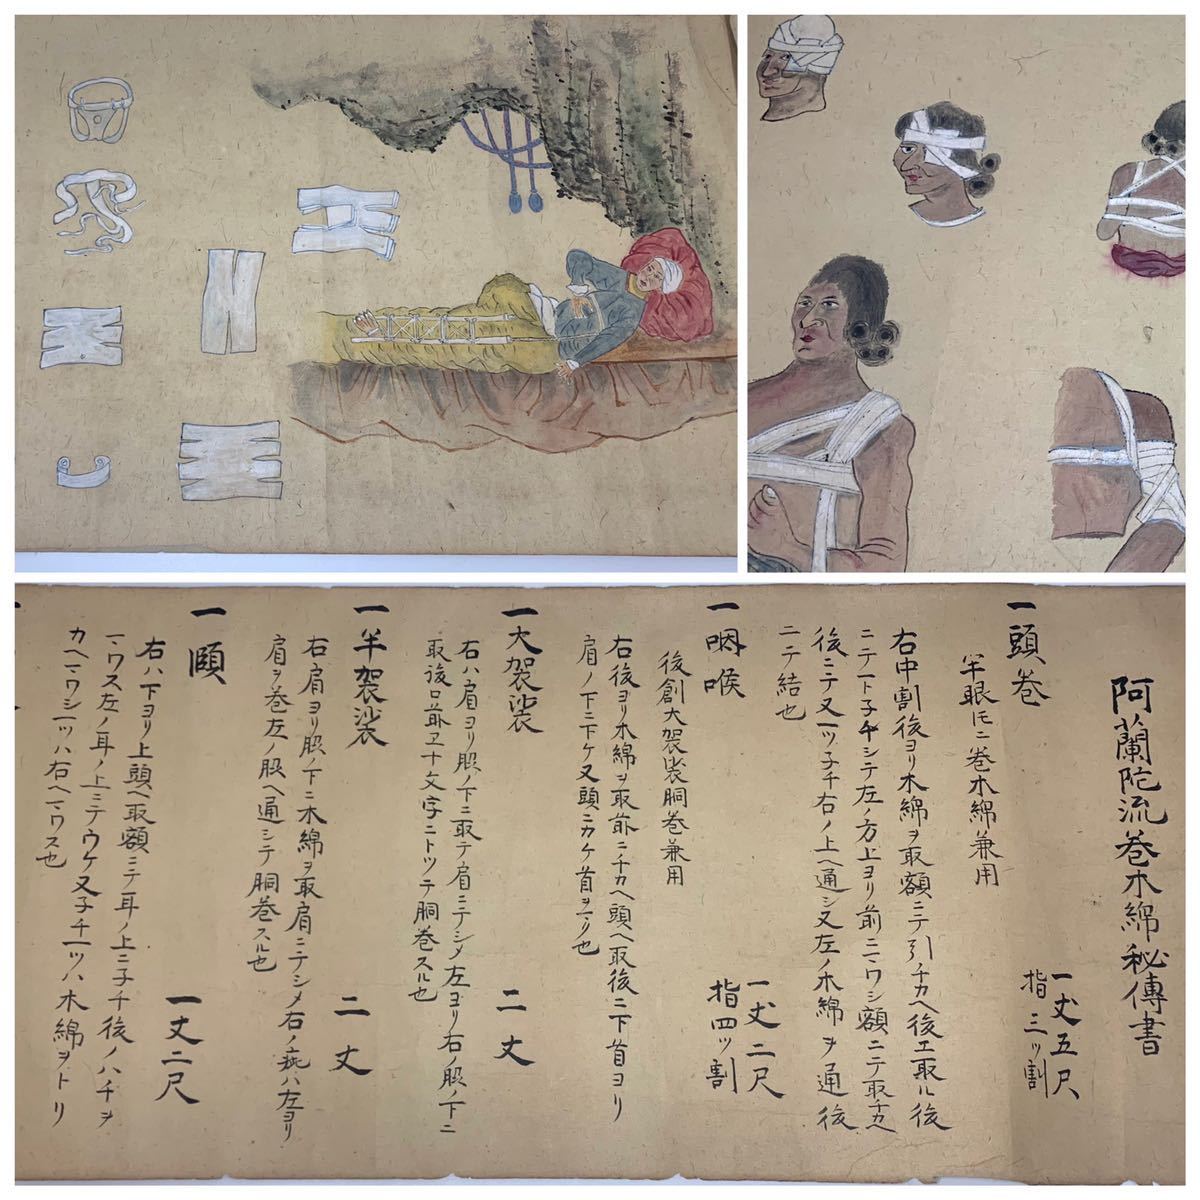 阿蘭陀流巻木綿秘傳書
一頭巻 一丈五尺 指三ツ割
半眼モニ巻木綿兼用
右中割後ヨリ木綿ヲ取額ニテ引ノチカヘ後エ取ル後
ニテ一ト子チシテ左ノ方上ヨリ前ニマワシ額ニテ取チカヘ
後ニテ又一ツ子チ右ノ上ヘ通シ又左ノ木綿ヲ通後
ニテ結也
一咽喉 一丈二尺 指四ツ割
後創大袈裟胴巻兼用
右後ヨリ木綿ヲ取前ニチカヘ頭ヘ取後ニ下首ヨリ
肩ノ下ニ下ケ又頭ニカケ首ヲマク也
一大袈裟 二丈
右ハ肩ヨリ股ノ下ニ取テ肩ニテシメ左ヨリ右ノ股ノ下ニ
取後ロ前ヱ十文字ニトツテ胴巻スル也
一半袈裟 二丈
右肩ヨリ股ノ下ニ木綿ヲ取肩ニテシメ右ノ疵ハ左ヨリ
肩ヲ巻左ノ股ヘ通シテ胴巻スル也
一頤 一丈二尺
右ハ下ヨリ上頭ヘ取額ニテ耳ノ上ニ子チ後ノハチヲ
マワス左ノ耳ノ上ミテウケ又子チ一ツハ木綿ヲトリ
カヘマワシ一ツハ右ヘマワス也